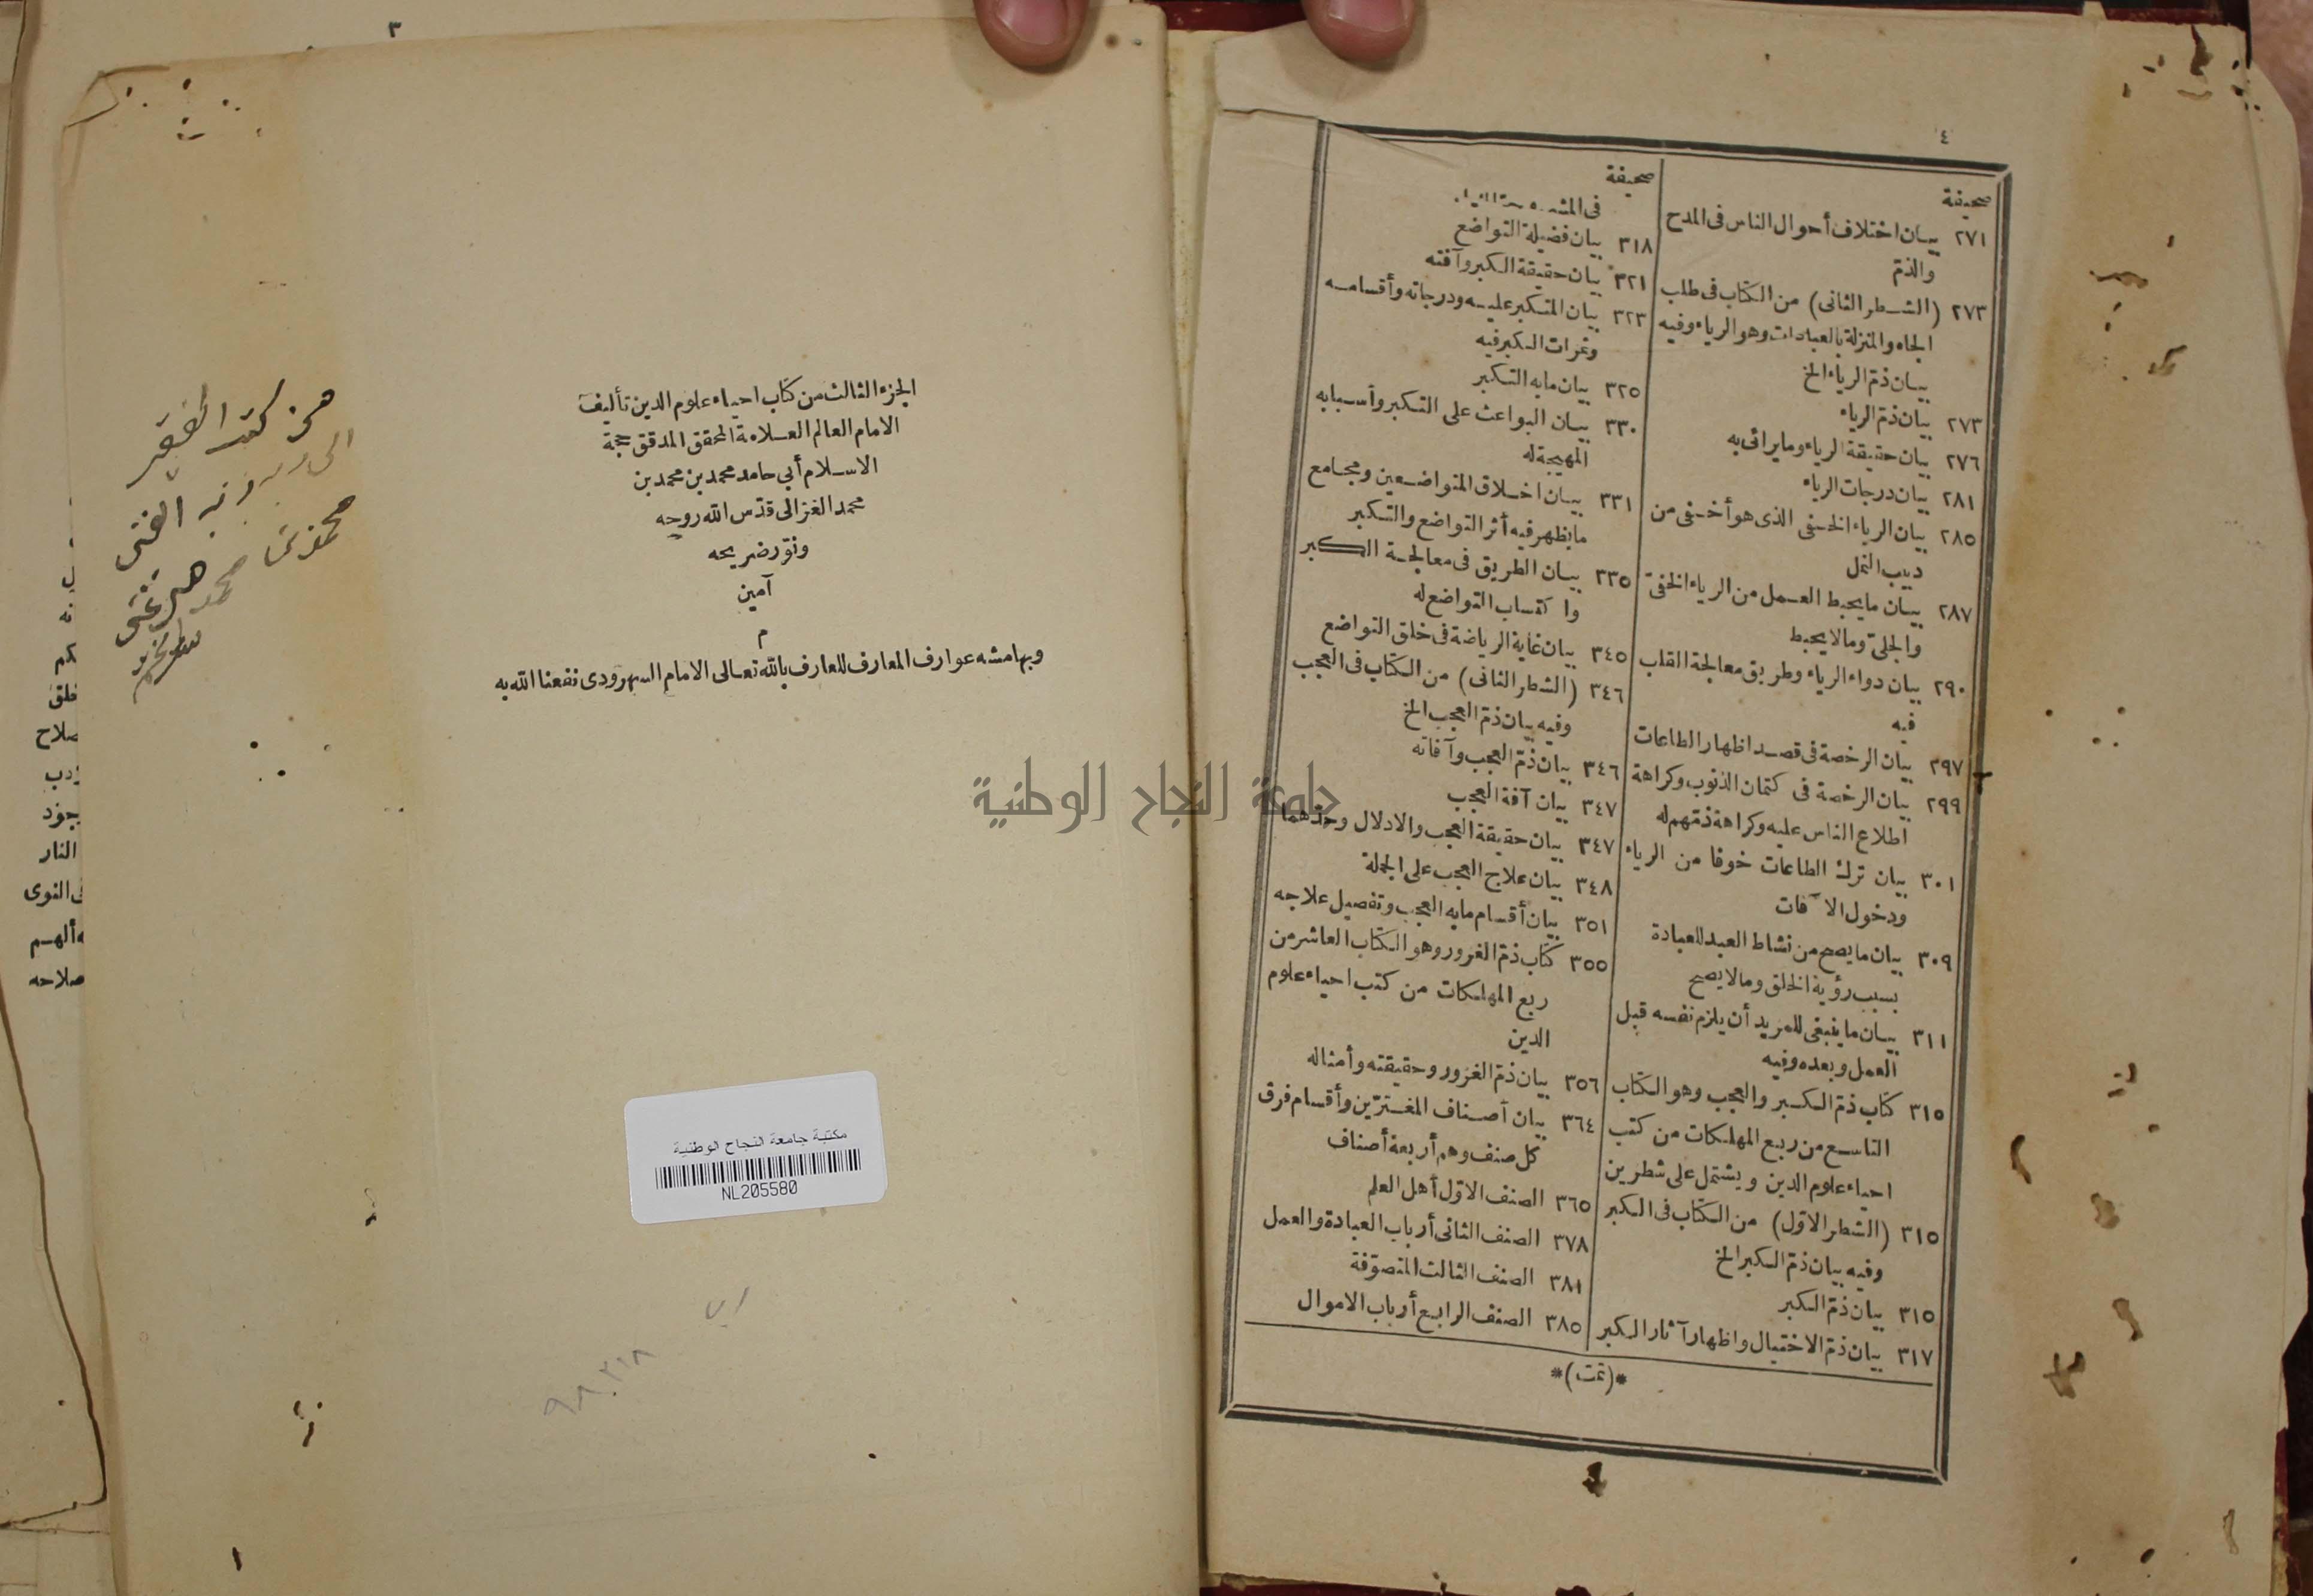 ٤
صحيفة
٢٧١ بيان اختلاف أحوال الناس فى المدح
والذم
٢٧٣ (الشطر الثانى) من الكتاب فى طلب
الجاه والمنزلة بالعبادات وهو الرياء وفيه
بيان ذم الرياء الخ
٢٧٣ بيان ذم الرياء
٢٧٦ بيان حقيقة الرياء وما يراءى به
٢٨١ بيان درجات الرياء
٢٨٥ بيان الرياء الخفى الذى هو أخفى من
دبيب النمل
٢٨٧ بيان ما يحبط العمل من الرياء الخفىّ
والجلىّ وما لا يحبط
٢٩٠ بيان دواء الرياء وطريق معالجة القلب
فيه
٢٩٧ بيان الرخصة فى قصد اظهار الطاعات
٢٩٩ بيان الرخصة فى كتمان الذنوب وكراهة
اطلاع الناس عليه وكراهة ذمهم له
٣٠١ بيان ترك الطاعات خوفا من الرياء
ودخول الآفات
٣٠٩ بيان ما يصح من نشاط العبد للعبادة
بسبب رؤية الخلق وما لا يصح
٣١١ بيان ما ينبغى للمريد أن يلزم نفسه قبل
العمل وبعده وفيه
٣١٥ كتاب ذم الكبر والعجب وهو الكتاب
التاسع من ربع المهلكات من كتب
احياء علوم الدين ويشتمل على شطرين
٣١٥ (الشطر الاوّل) من الكتاب فى الكبر
وفيه بيان ذم الكبر الخ
٣١٥ بيان ذم الكبر
٣١٧ بيان ذم الاختيال واظهار آثار الكبر
صحيفة
فى المشى
٣١٨ بيان فضيلة التواضع
٣٢١ بيان حقيقة الكبر وآفته
٣٢٣ بيان المتكبر عليه ودرجاته وأقسامه
وثمرات الكبر فيه
٣٢٥ بيان ما به التكبر
٣٣٠ بيان البواعث على التكبر وأسبابه
المهيجة له
٣٣١ بيان اخلاق المتواضعين ومجامع
ما يظهر فيه أثر التواضع والتكبر
٣٣٥ بيان الطريق فى معالجة الكبر
واكتساب التواضع له
٣٤٥ بيان غاية الرياضة فى خلق التواضع
٣٤٦ (الشطر الثانى) من الكتاب فى العجب
وفيه بيان ذم العجب الخ
٣٤٦ بيان ذم العجب وآفاته
٣٤٧ بيان آفة العجب
٣٤٧ بيان حقيقة العجب والادلال وحدّهما
٣٤٨ بيان علاج العجب على الجملة
٣٥١ بيان أقسام ما به العجب وتفصيل علاجه
٣٥٥ كتاب ذم الغرور وهو الكتاب العاشر من
ربع المهلكات من كتب احياء علوم
الدين
٣٥٦ بيان ذم الغرور وحقيقته وأمثاله
٣٦٤ بيان أصناف المغترّين وأقسام فرق
كل صنف وهم أربعة أصناف
٣٦٥ الصنف الاوّل أهل العلم
٣٧٨ الصنف الثانى أرباب العبادة والعمل
٣٨١ الصنف الثالث المتصوّفة
٣٨٥ الصنف الرابع أرباب الاموال
*(تمت)*
جامعة النجاح الوطنية
٣
الجزء الثالث من كتاب احياء علوم الدين تأليف
الامام العالم العلامة المحقق المدقق حجة
الاسلام أبي حامد محمد بن محمد بن
محمد الغزالى قدّس الله روحه
ونوّر ضريحه
آمين
م
وبهامشه عوارف المعارف للعارف بالله تعالى الامام السهروردى نفعنا الله به
من كتب الفقير
مكتبة جامعة النجاح الوطنية
NL205580
نه
كم
صلاح
النار
النوى
صلاحه